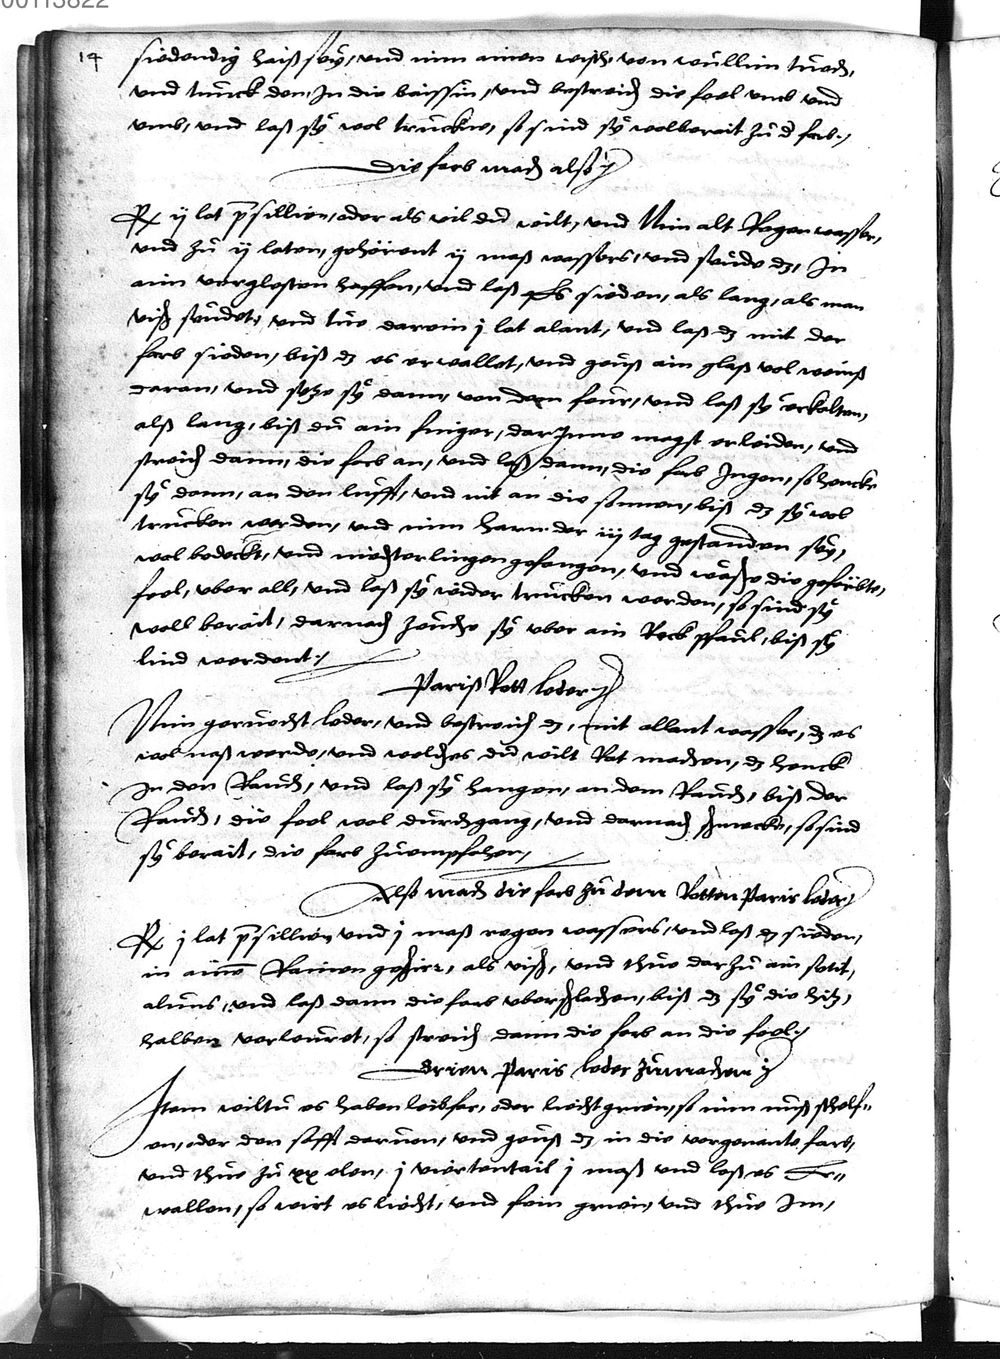 00113822
14
siedendig haiß seÿ, vnd nim ainen wisch, von wullim tuoch,
vnd tunck den, In die baissin, vnd bestreich die feel vmb vnd
vmb, und laß sÿ wol trucknen, so sind sÿ wolberait zu d farb.
Die farb mach alßo
Rx ij lot p̄sillien, oder als vil du wilt, vnd Nim alt Regen wasser,
vnd zu ij laten, gehörent ij maß wassers, vnd seude dz, In
ain verglesten haffen, vnd laß es sieden, als lang, als man
visch seudet, vnd tue darein j lot alant, vnd laß dz mit der
farb sieden, biß dz es erwallet, vnd geuß ain glaß vol weinß
daran, vnd setze sÿ dann, von dem feur, vnd laß sÿ erkalten,
alß lang, biß du ain finger, dar Inne magst erleiden, vnd
streich dann, die farb an, vnd laß dann, die farb Ingen, so hencke
sÿ dann, an den lufft, vnd nit an die sonnen, biß dz sÿ wol
trucken werden, vnd nim harn der iij tag gestanden seÿ,
wol bedeckt, vnd niechterlingen gefangen, vnd wasche die geferbte,
feel, vber all, vnd laß sÿ wider trucken werden, so sind sÿ
woll berait, darnach zeuche sÿ vber ain Reck pfaul, biß sÿ
lind werdent
Pariß Rott leder
Nim geruocht leder, vnd bestreich dz, mit allant wasser, dz es
wol naß werde, vnd welches du wilt Rot machen, dz henck
In den Rauch, vnd laß sÿ hangen, an dem Rauch, biß der
Rauch, die feel wol durchgang, vnd darnach schmecke, so sind
sÿ berait, die farb zuempfahen,
Alßo mach die farb zu dem Rotten Paris leder
Rx j lot p̄sillien vnd j maß regen wassers, vnd laß dz sieden,
in ainem Rainen geschirr, als visch, vnd thue dar zu ain setit,
aluns, vnd laß dann die farb vberschlachen, biß dz sÿ die hitz,
halben verleuret, so streich dann die farb an die feel
Grien Paris leder zumachen
Item wiltu es haben leibfar, oder liecht grien, so nim nuß schelf„
en, oder den safft daruon, vnd geuß dz in die vorgenante farb,
vnd thue zu xx elen, j viertentail j maß vnd laß es Er„
wallen, so wirt es liecht, vnd fein grien, vnd thue Im,